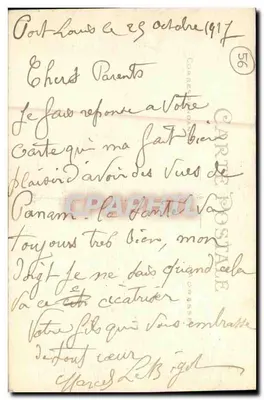 Port Louis le 25 octobre 1917
56
Chers Parents
Je fais reponse a votre
carte qui ma fait bien
plaisir d'avoir des vues de
Panam. la santé va
toujours tres bien, mon
doigt je ne sais quand cela
va ce cicatriser
Votre fils qui vous embrasse
de tout cœur
Marcel Le Bigot
CARTE POSTALE
CPAPHIL